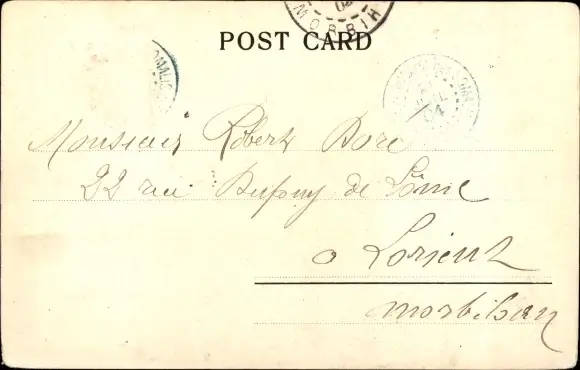 MORBIHAN
04
POST CARD
OMALIS
04
Monsieur Robert Bore
22 rue Dupuy de Lôme
a Lorient
Morbihan